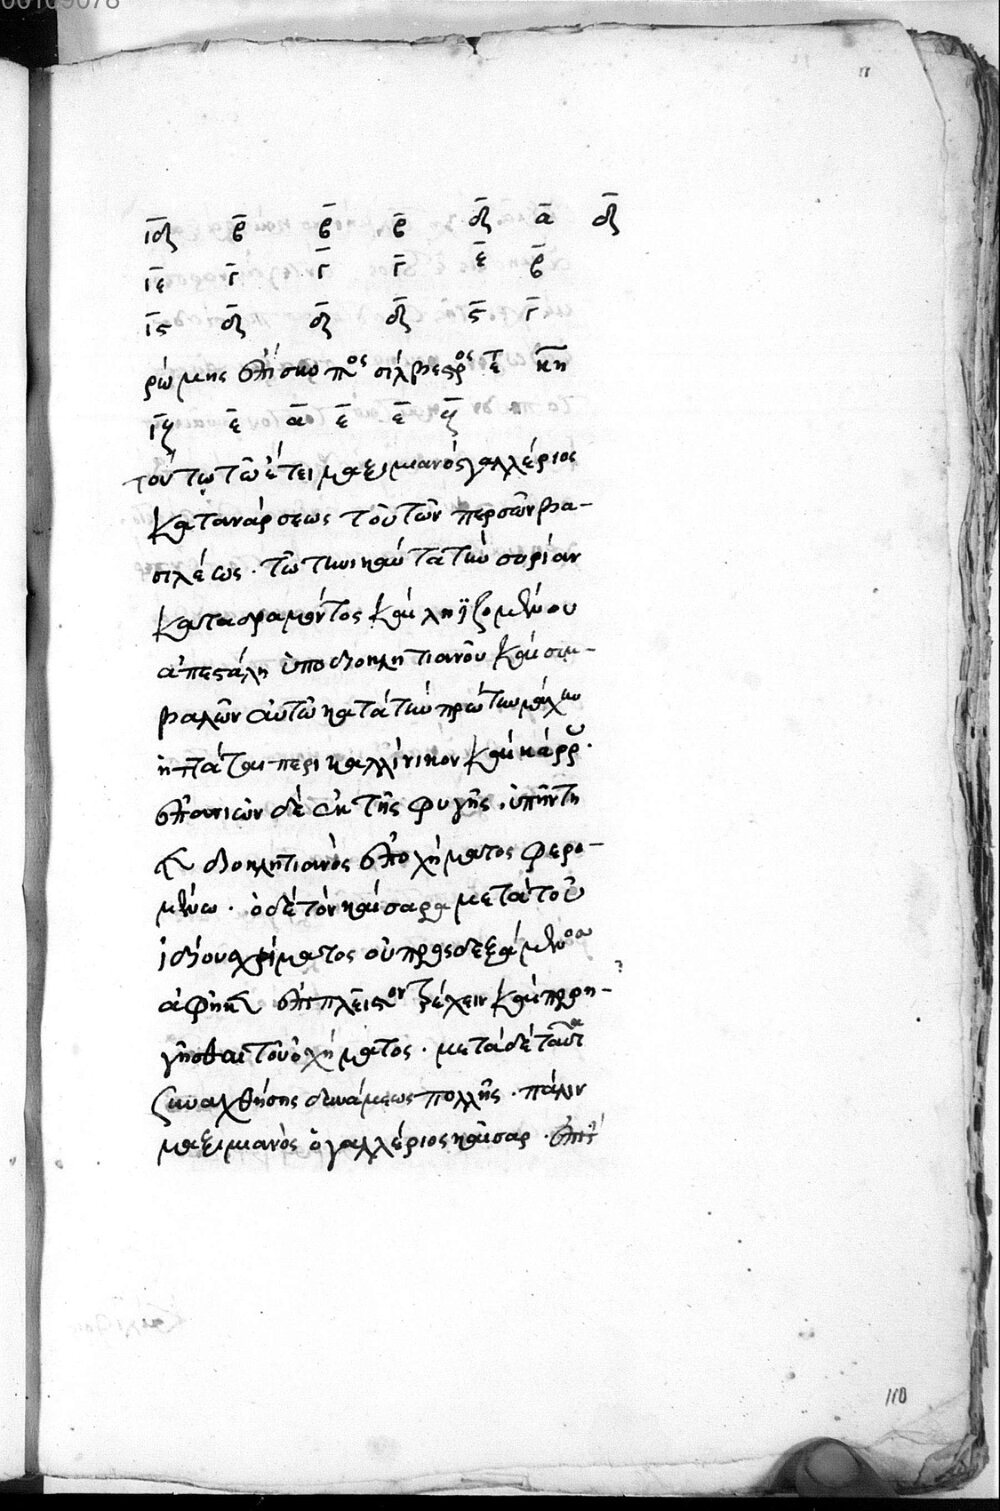 00109078
ι̅δ̅ β̅ β̅ β̅ δ̅ α̅ δ̅
ι̅ε̅ γ̅ γ̅ γ̅ ε̅ β̅
ι̅ς̅ δ̅ δ̅ δ̅ ς̅ γ̅
ῥώμης ἐπίσκοπος σίλβεστρος ἔτη κη
ι̅ζ̅ ε̅ α̅ ε̅ ε̅ ζ̅
τούτω τῶ ἔτει μαξιμιανὸς γαλλέριος
κατα ναρσεως τοῦ τῶν περσῶν βα-
σιλέως. τῶ τηνικαῦτα τὴν συρίαν
καταδραμόντος καὶ ληϊζομένου
ἀπεστάλη ὑπο διοκλητιανοῦ καὶ συμ-
βαλῶν αὐτῶ κατὰ τὴν πρώτην μάχην
ἡττάται περι καλλίνικον καὶ κάρρ.
ἐπανιὼν δὲ ἐκ τῆς φυγῆς. ὑπήντη
σεν διοκλητιανὸς ἐπ ὀχήματος φερο-
μένω. ὁ δὲ τὸν καίσαρα μετὰ τοῦ
ἰδίου σχήματος οὐ προσδεξάμενος
ἀφῆκεν ἐπι πλεῖστον τρέχειν καὶ προη-
γῆσθαι τοῦ ὀχήματος. μετὰ δὲ ταῦτα
συναχθήσης δυνάμεως πολλῆς. πάλιν
μαξιμιανὸς ὁ γαλλέριος καῖσαρ. ἐπι
110